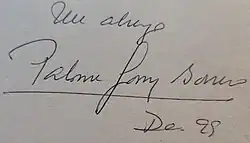 Un abrazo
Paloma Gómez Borrero
Dic. 99